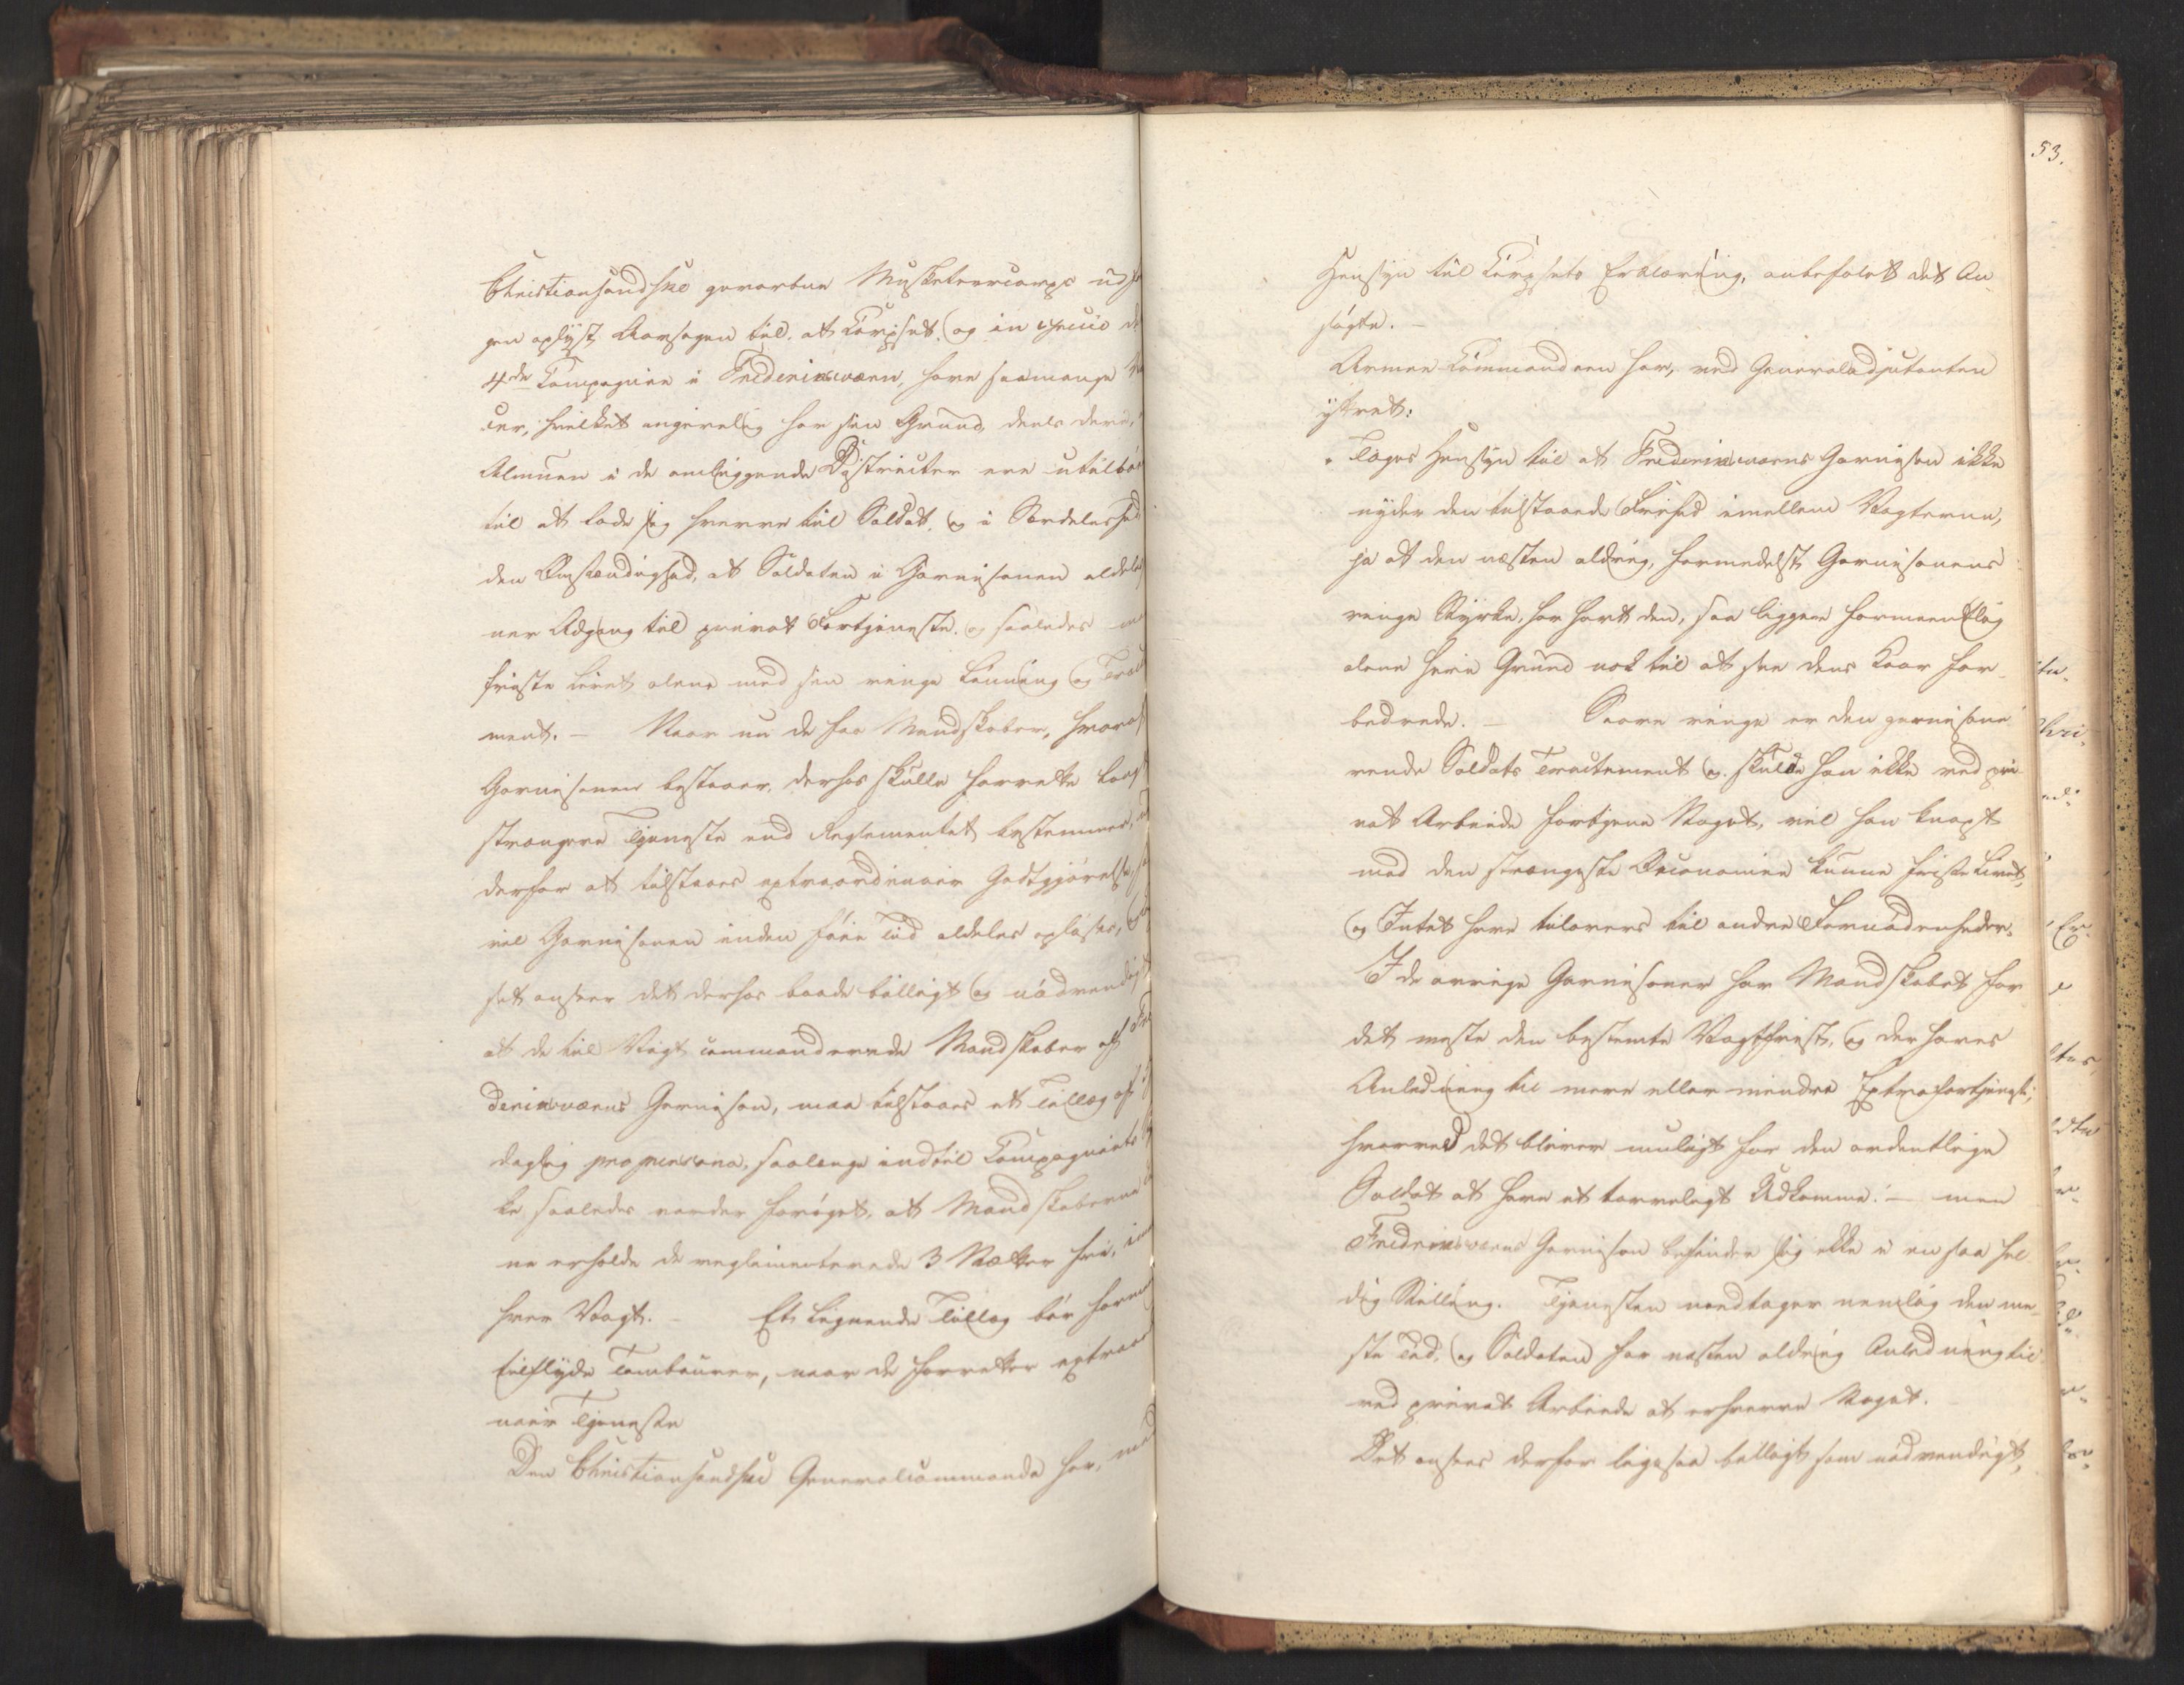 Christiansandske gevorbne Musketeercorps udf
gen oplyst Aarsagen til, at Corpset, og in specie d
4de Compagnie i Fredericsværn, have saamange Va
cer, hvilket angivelig har sin Grund, deels deri,
Almuen i de omliggende Districter ere utilbøi
til at lade sig hverve til Soldat, og i Særdeleshed
den Omstændighed, at Soldaten i Garnisonen aldeles
ner Adgang til privat Fortjeneste, og saaledes m
friste Livet alene med sin ringe Lønning og Tract
ment. – Naar nu de faa Mandskaber, hvoraf
Garnisonen bestaaer, derhos skulle forrette langt
strængere Tjeneste end Reglementet bestemmer,
derfor at tilstaaes extraordinair Godtgjørelse,
vil Garnisonen inden føie Tid aldeles opløses,
set anseer det derfor baade billigt og nødvendigt
at de til Vagt commanderede Mandskaber af Fre
dericsværns Garnison, maa tilstaaes et Tillæg af
daglig pro persona, saalænge indtil Compagniets
ke saaledes vorder forøget, at Mandskaberne
ne erholde de reglementerede 3 Nætter fri, im
hver Vagt. – Et lignende Tillæg bør formee
tilflyde Tambourer, naar de forrette extraord
nair Tjeneste
Den Christiansandske Generalcommando har, med
53.
Hensyn til Corpsets Erklæring, anbefalet det An
søgte. –
Armee Commandoen har, ved Generaladjutanten
yttret:
" Tages Hensyn til at Fredericsværns Garnison ikke
nyder den tilstaaede Frihed imellem Vagterne,
ja at den næsten aldrig, formedelst Garnisonens
ringe Styrke, har havt den, saa ligger formeentlig
alene heri Grund nok til at see dens Kaar for
bedrede. – Saare ringe er den garnisone
rende Soldats Tractement og skulde han ikke ved pri
vat Arbeide fortjene Noget, vil han knapt
med den strængeste Oeconomie kunne friste Livet,
og Intet have tilovers til andre Fornødenheder.
I de øvrige Garnisoner har Mandskabet for
det meste den bestemte Vagtfrist, og der haves
Anledning til mere eller mindre Extrafortjenst,
hvorved det bliver muligt for den ordentlige
Soldat at have et taaleligt Udkomme. – men
Fredericsværns Garnison befinder sig ikke i en saa hel
dig Stilling. Tjenesten medtager nemlig den me
ste Tid, og Soldaten har næsten aldrig Anledning til
ved privat Arbeide at erhverve Noget.
Det ansees derfor ligesaa billigt som nødvendigt,